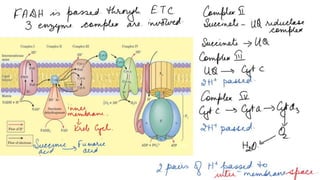 FADH is passed through ETC
3 enzyme complex are involved
Complex II
Succinate - UQ reductase
complex
Succinate → UQ
Complex III
UQ → Cyt C
2H⁺ passed.
Complex IV
Cyt c → Cyt a → Cyt a₃
2H⁺ passed.
O₂
H₂O
Complex I
Complex II
Complex III
Complex IV
inner
membrane.
Kreb Cycl.
Succinic
acid → Fumaric
acid
ADP + PO₄³⁻
ATP
Flow of H⁺
Flow of electrons
2 pairs of H⁺ passed to
inter membrane space.